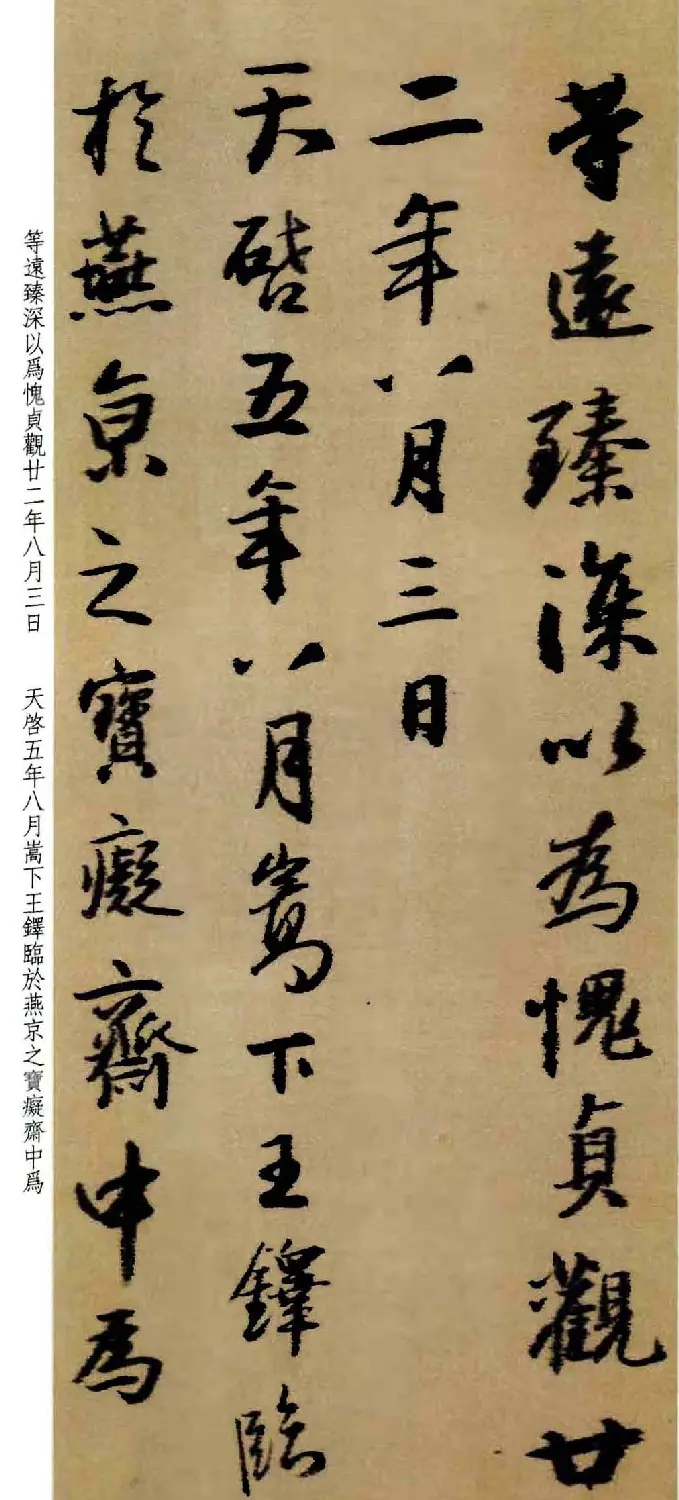 等遠臻深以為愧貞觀廿
二年八月三日
天啓五年八月嵩下王鐸臨
於燕京之寶癡齋中為
等遠臻深以爲愧貞觀廿二年八月三日　天啓五年八月嵩下王鐸臨於燕京之寶癡齋中爲